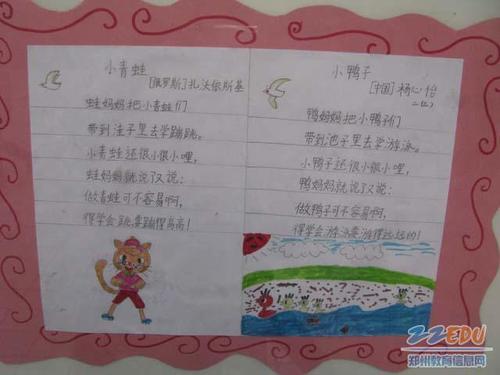 小青蛙
[俄罗斯]扎沃依斯基
蛙妈妈把小青蛙们
带到洼子里去学蹦跳。
小青蛙还很小很小哩,
蛙妈妈就说了又说:
做青蛙可不容易啊,
得学会跳,要蹦得高高!
小鸭子
[中国]杨心怡
二(2)
鸭妈妈把小鸭子们
带到池子里去学游泳。
小鸭子还很小很小哩,
鸭妈妈就说了又说:
做鸭子可不容易啊,
得学会游泳要游得远远的!
ZZEDU
郑州教育信息网